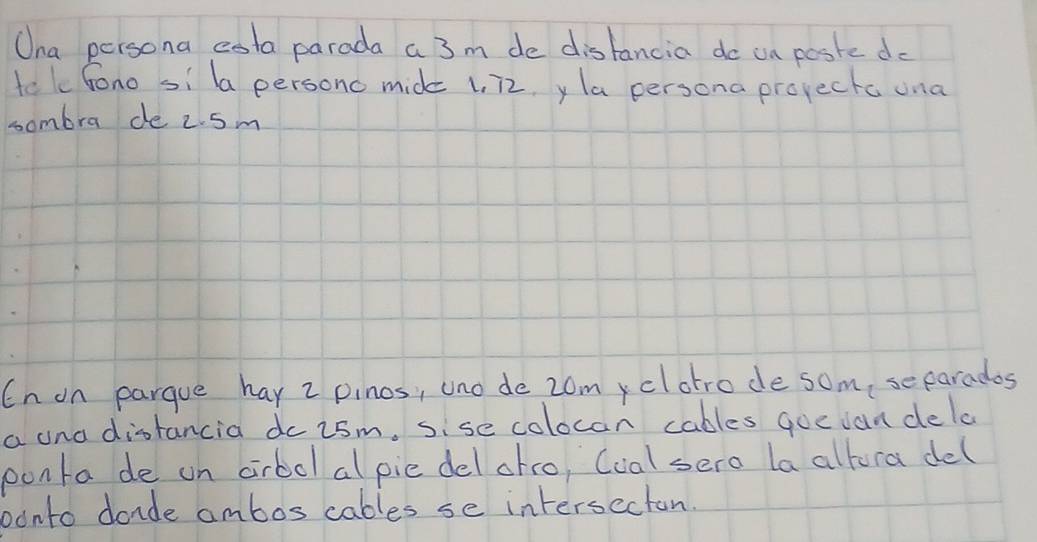 Una persona esta parada a 3m de distancia de un poste de
telefono si la persona mide 1.72, y la persona proyecta una
sombra de 2.5m
En un parque hay 2 pinos, uno de 20m y el otro de 50m, separados
a una distancia de 25m. si se colocan cables que van de la
punta de un árbol al pie del otro, Cual sera la altura del
punto donde ambos cables se intersectan.